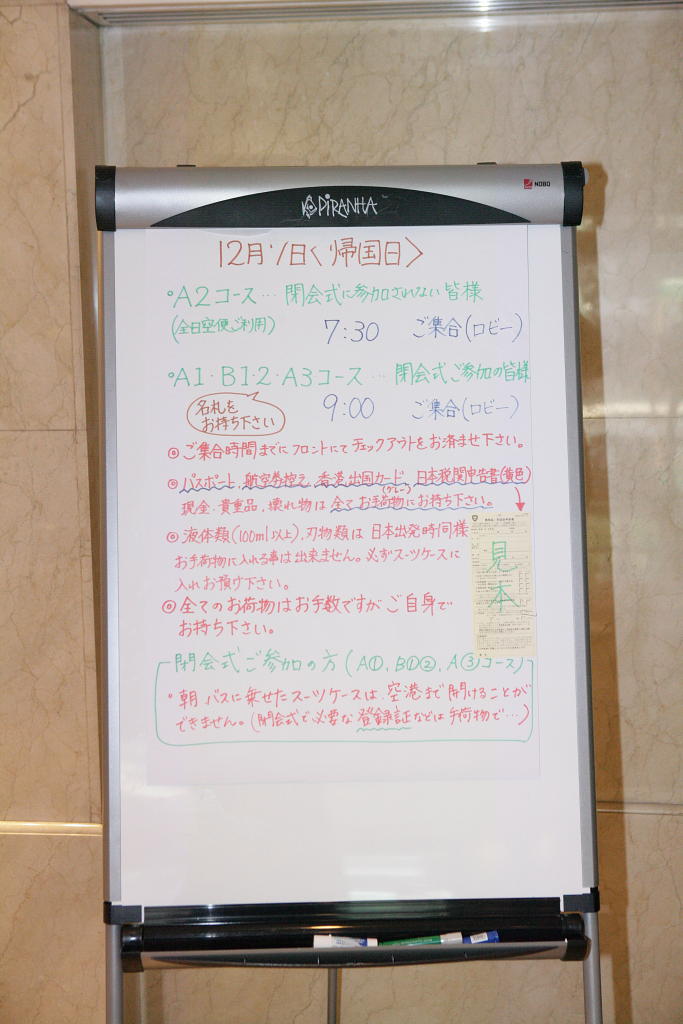 NOBO
PiRANHA
12月 日〈帰国日〉
°A2コース… 閉会式に参加されない皆様
(全日空便ご利用) 7:30 ご集合(ロビー)
°A1・B1・2・A3コース … 閉会式ご参加の皆様
名札を
お持ち下さい
9:00 ご集合(ロビー)
◎ご集合時間までにフロントにてチェックアウトをお済ませ下さい。
◎パスポート、航空券控え、香港出国カード、日本税関申告書(黄色)
(グレー)
現金、貴重品、壊れ物は全てお手荷物にお持ち下さい。
◎液体類(100ml以上)、刃物類は日本出発時同様
お手荷物に入れる事は出来ません。必ずスーツケースに
入れお預け下さい。
◎全てのお荷物はお手数ですがご自身で
お持ち下さい。
見本
閉会式ご参加の方(A①、B①②、A③コース)
°朝バスに乗せたスーツケースは、空港まで開けることが
できません。(閉会式で必要な登録証などは手荷物で…)